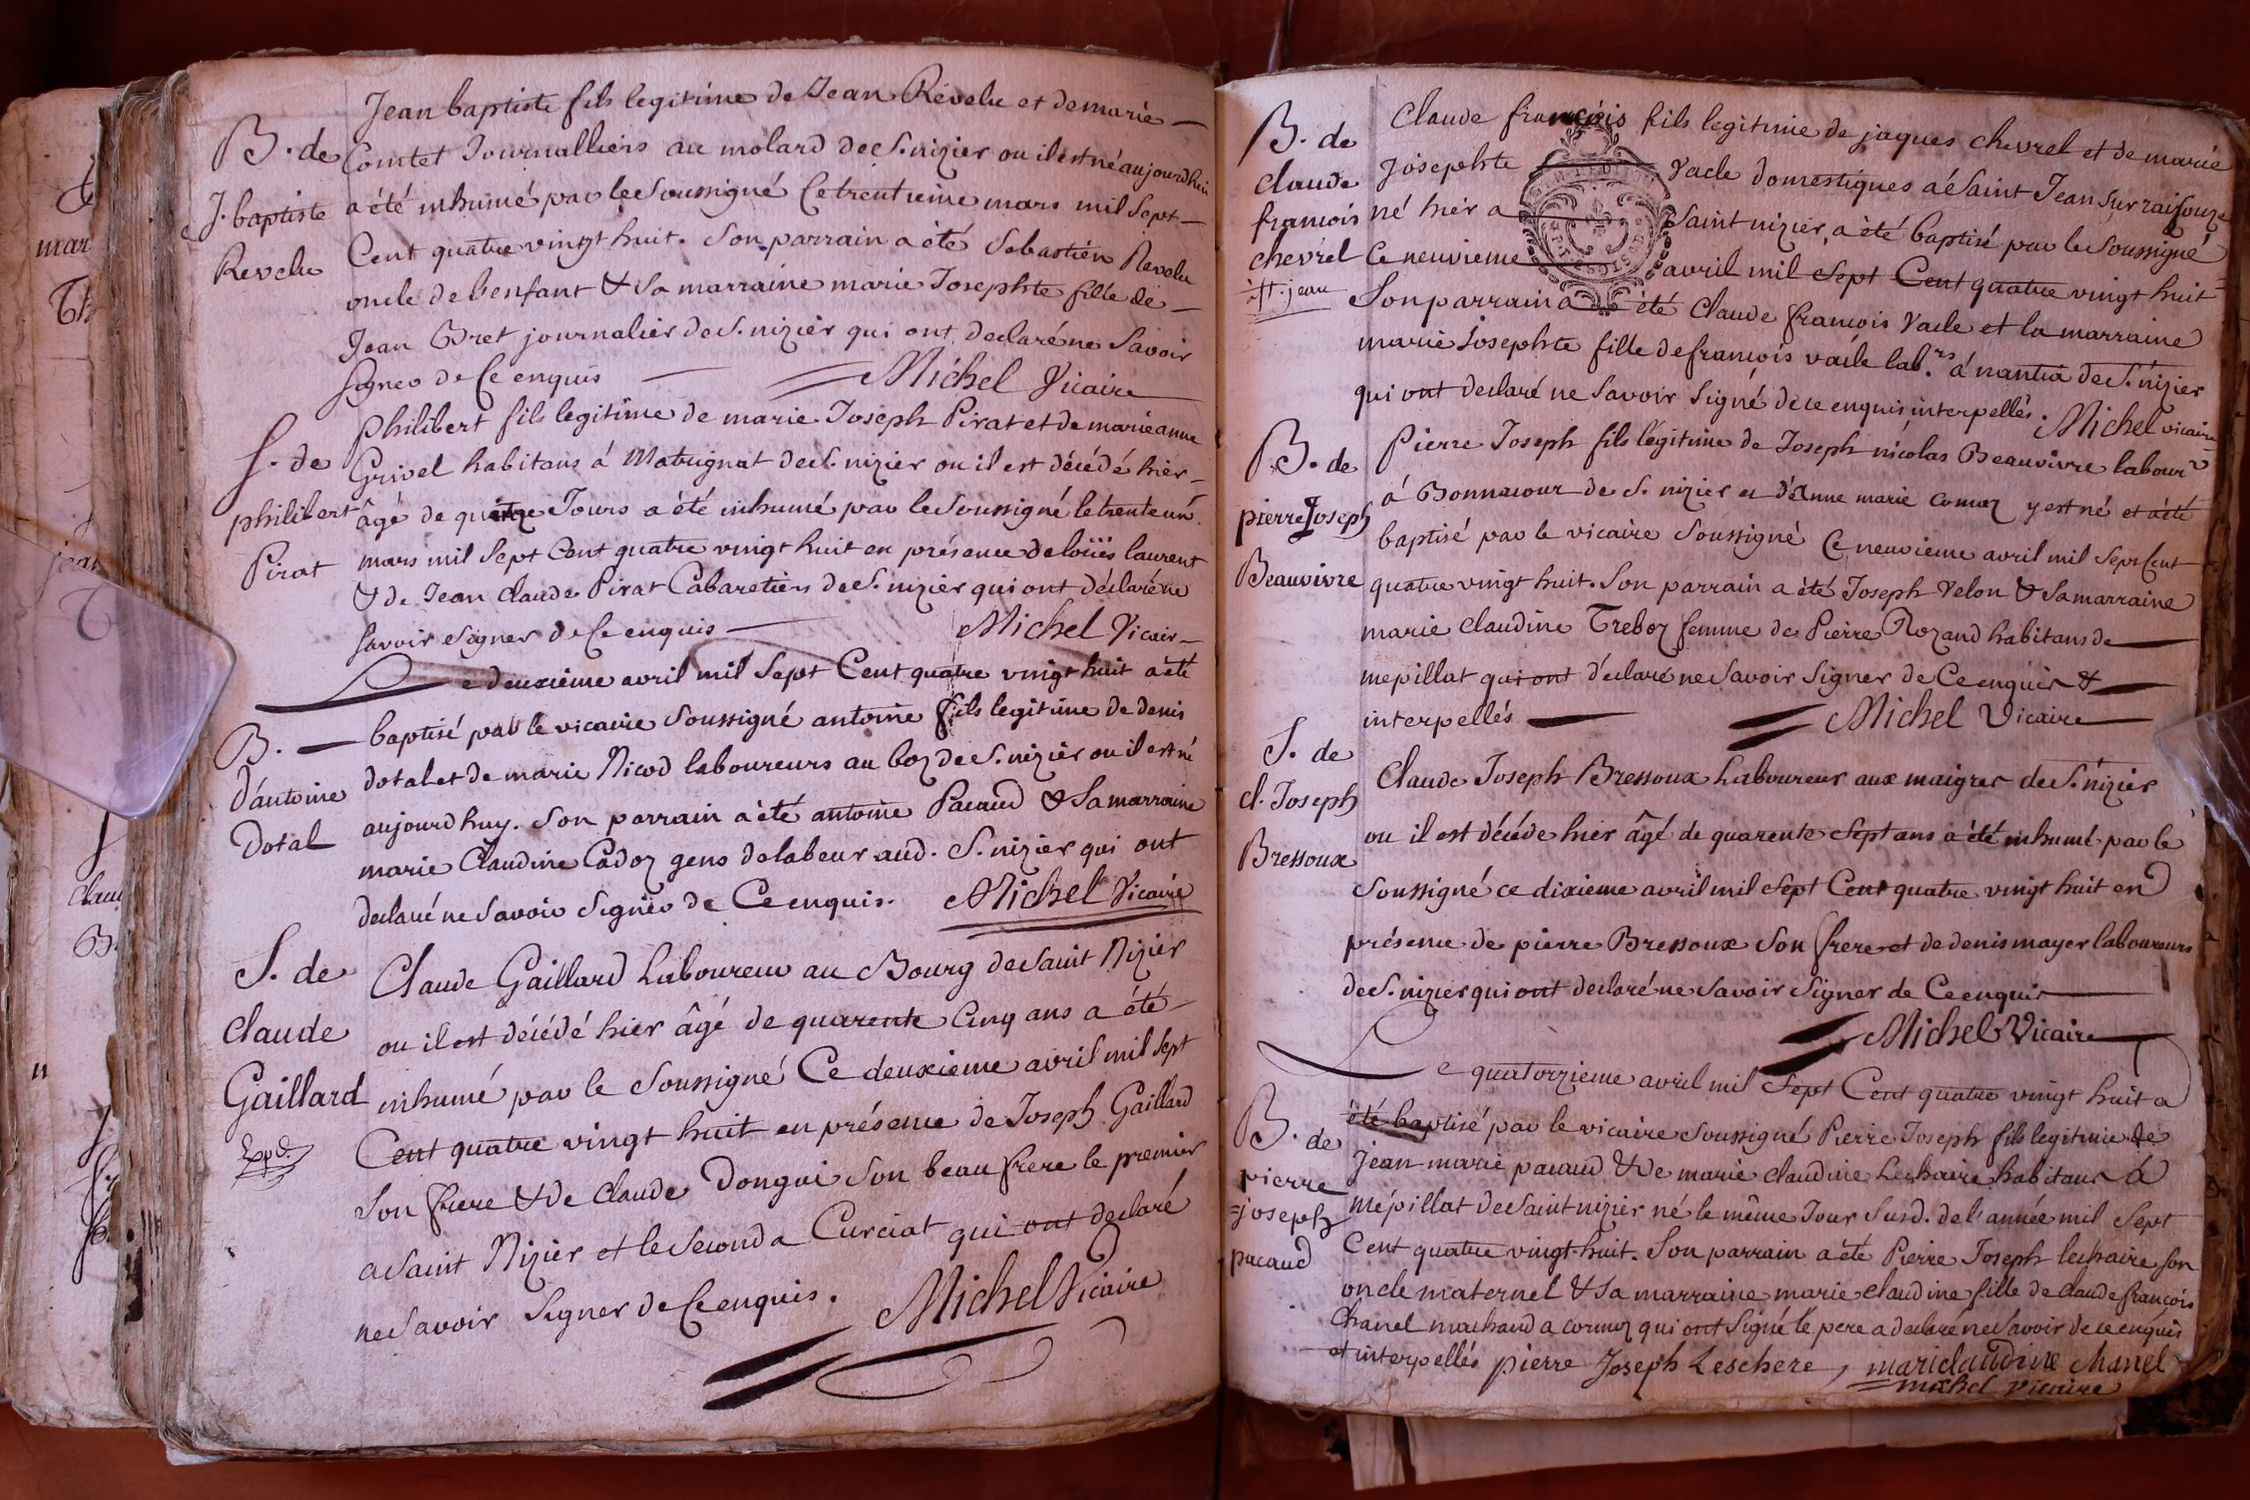 Jean baptiste fils legitime de Jean Revelu et de marie
B. de
Comtet Journalliers au molard de S. nizier ou il est né aujourdhui
J. baptiste
a été inhumé par le Soussigné Ce trentieme mars mil Sept
Revelu
Cent quatre vingt huit. Son parrain a été Sebastien Revelu
oncle de l'enfant & Sa marraine marie Josephte fille de
Jean Bret journalier de S. nizier qui ont declaré ne Savoir
Signer de Ce enquis Michel Vicaire
philibert fils legitime de marie Joseph Pirat et de marie anne
S. de
Grivel habitans á Matrignat de S. nizier ou il est décédé hier
philibert
âgé de quatre Jours a été inhumé par le Soussigné le trente un
Pirat
mars mil Sept Cent quatre vingt huit en présence de loüis laurent
& de Jean claude Pirat Cabaretiers de S. nizier qui ont déclaré ne
Savoir Signer de Ce enquis Michel Vicair
Le deuxieme avril mil Sept Cent quatre vingt huit a été
B.
baptisé par le vicaire Soussigné antoine fils legitime de denis
d'antoine
dotal et de marie Nicod laboureurs au boz de S. nizier ou il est né
Dotal
aujourdhuy. Son parrain a été antoine Pacaud & Sa marraine
marie Claudine Cadoz gens de labeur aud. S. nizier qui ont
declaré ne Savoir Signer de Ce enquis. Michel Vicaire
S. de
Claude Gaillard Laboureur au Bourg de Saint Nizier
claude
ou il est décédé hier âgé de quarente Cinq ans a été
Gaillard
inhumé par le Soussigné Ce deuxieme avril mil Sept
Expd.
Cent quatre vingt huit en présence de Joseph Gaillard
Son frere & de claude Dongui Son beau frere le premier
a Saint Nizier et le Second a Curciat qui ont declaré
ne Savoir Signer de Ce enquis. Michel Vicaire
Claude françois fils legitime de jaques chevrel et de marie
B. de
Josephte Vacle domestiques a é Saint Jean Sur raisouze
claude
né hier a Saint nizier, a été baptisé par le Soussigné
francois
Ce neuvieme avril mil Sept Cent quatre vingt huit
chevrel
à St. jean
Son parrain a été claude françois Vacle et la marraine
marie Josephte fille de françois vacle lab.rs á nantia de S. nizier
qui ont declaré ne Savoir Signé de ce enquis interpellés. Michel vicaire
B. de
Pierre Joseph fils légitime de Joseph nicolas Beauvivre labour
pierre Joseph
á Bonnacour de S. nizier et d'Anne marie Comoz y est né et a été
Beauvivre
baptisé par le vicaire Soussigné Ce neuvieme avril mil Sept Cent
quatre vingt huit. Son parrain a été Joseph Velon & Sa marraine
marie claudine Treboz femme de Pierre Rozand habitans de
mepillat qui ont déclaré ne Savoir Signer de Ce enquis &
interpellés Michel Vicaire
S. de
Claude Joseph Bressoux Laboureur aux maigres de S. nizier
cl. Joseph
ou il est décédé hier âgé de quarente Sept ans a été inhumé par le
Bressoux
Soussigné ce dixieme avril mil Sept Cent quatre vingt huit en
présence de pierre Bressoux Son frere et de denis mayer laboureurs
de S. nizier qui ont declaré ne Savoir Signer de Ce enquis
Michel Vicaire
Le quatorzieme avril mil Sept Cent quatre vingt huit a
B. de
été baptisé par le vicaire Soussigné Pierre Joseph fils legitime de
pierre
Jean marie pacaud & de marie claudine Leshaire habitans á
joseph
Mépillat de Saint nizier né le même Jour Susd. de l'année mil Sept
pacaud
Cent quatre vingt huit. Son parrain a été Pierre Joseph leshaire Son
oncle maternel & Sa marraine marie claudine fille de claude françois
Chanel marchand a cormoz qui ont Signé le pere a declaré ne Savoir de ce enquis
et interpellés pierre Joseph Leschere, mariclaudine chanel
michel vicaire